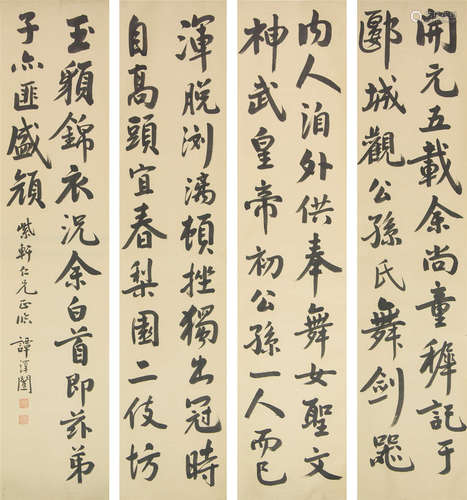 開元五載余尚童穉記于
郾城觀公孫氏舞劍器
内人洎外供奉舞女聖文
神武皇帝初公孫一人而已
渾脱浏漓頓挫獨出冠時
自高頭宜春梨園二伎坊
玉貌錦衣況余白首即兹弟
子亦匪盛顔
紫軒仁兄正臨
譚澤闓